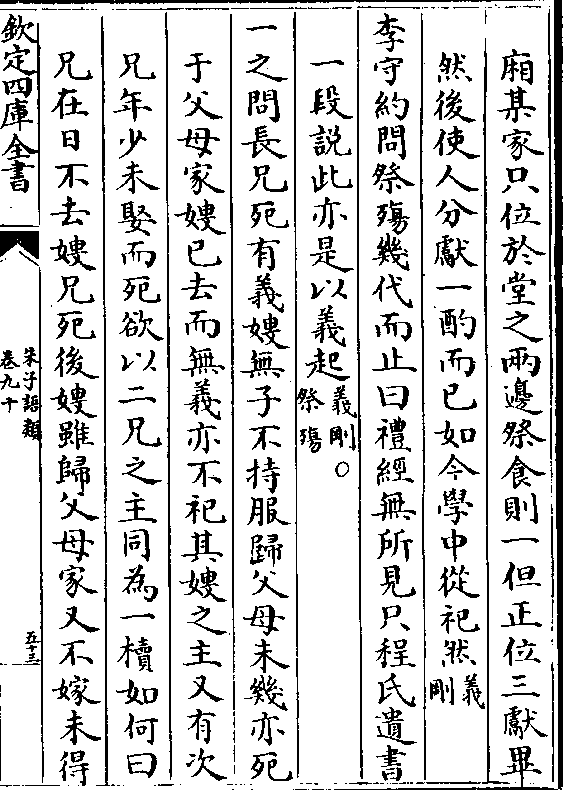 廂某家只位於堂之兩邊祭食則一但正位三獻畢
然後使人分獻一酌而已如今學中從祀然義剛
李守約問祭殤幾代而止曰禮經無所見只程氏遺書
一段說此亦是以義起義剛○祭殤
一之問長兄死有義嫂無子不持服歸父母未幾亦死
于父母家嫂已去而無義亦不祀其嫂之主又有次
兄年少未娶而死欲以二兄之主同為一櫝如何曰
兄在日不去嫂兄死後嫂雖歸父母家又不嫁未得
欽定四庫全書
朱子語類
卷九十
五十三